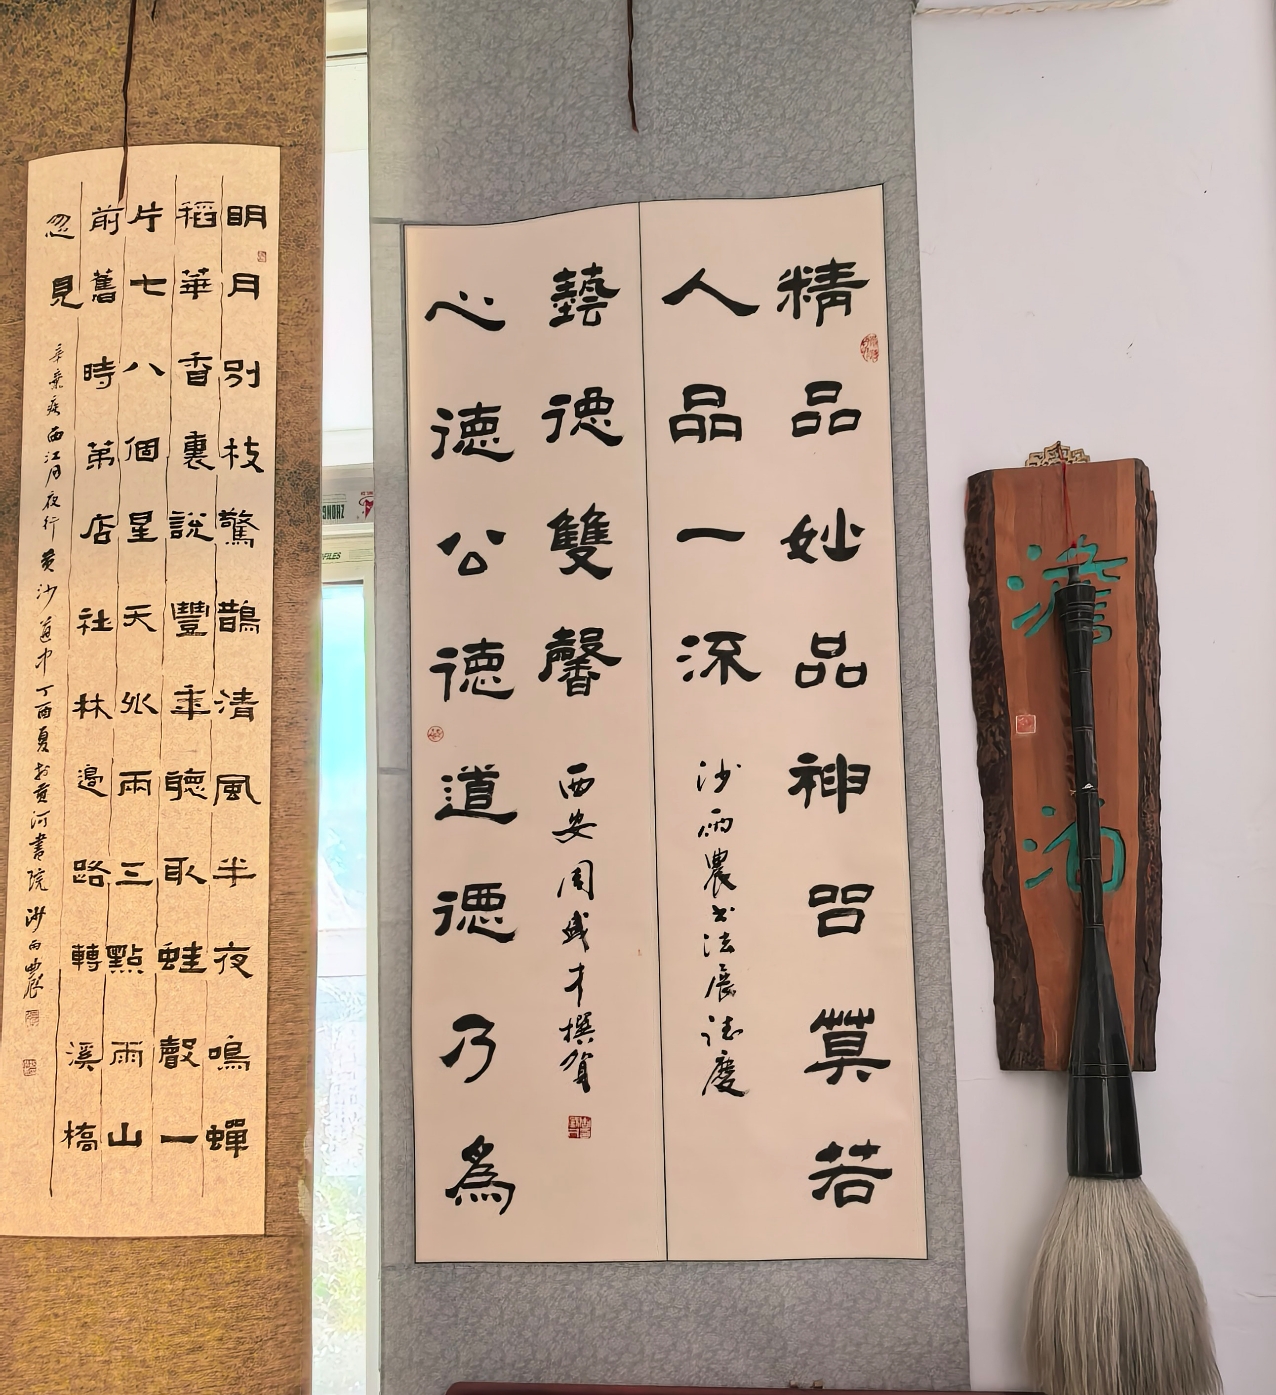 精品妙品神品莫若
人品一流
沙雨農书法展誌慶
藝德雙馨
西安周盛才撰賀
心德公德道德乃為
明月別枝驚鵲清風半夜鳴蟬
稻華香裏說豐年聽取蛙聲一
片七八個星天外兩三點雨山
前舊時茅店社林邊路轉溪橋
忽見
辛棄疾西江月夜行黄沙道中丁酉夏於黄河書院沙雨農
澹泊
ZHONG
FILES